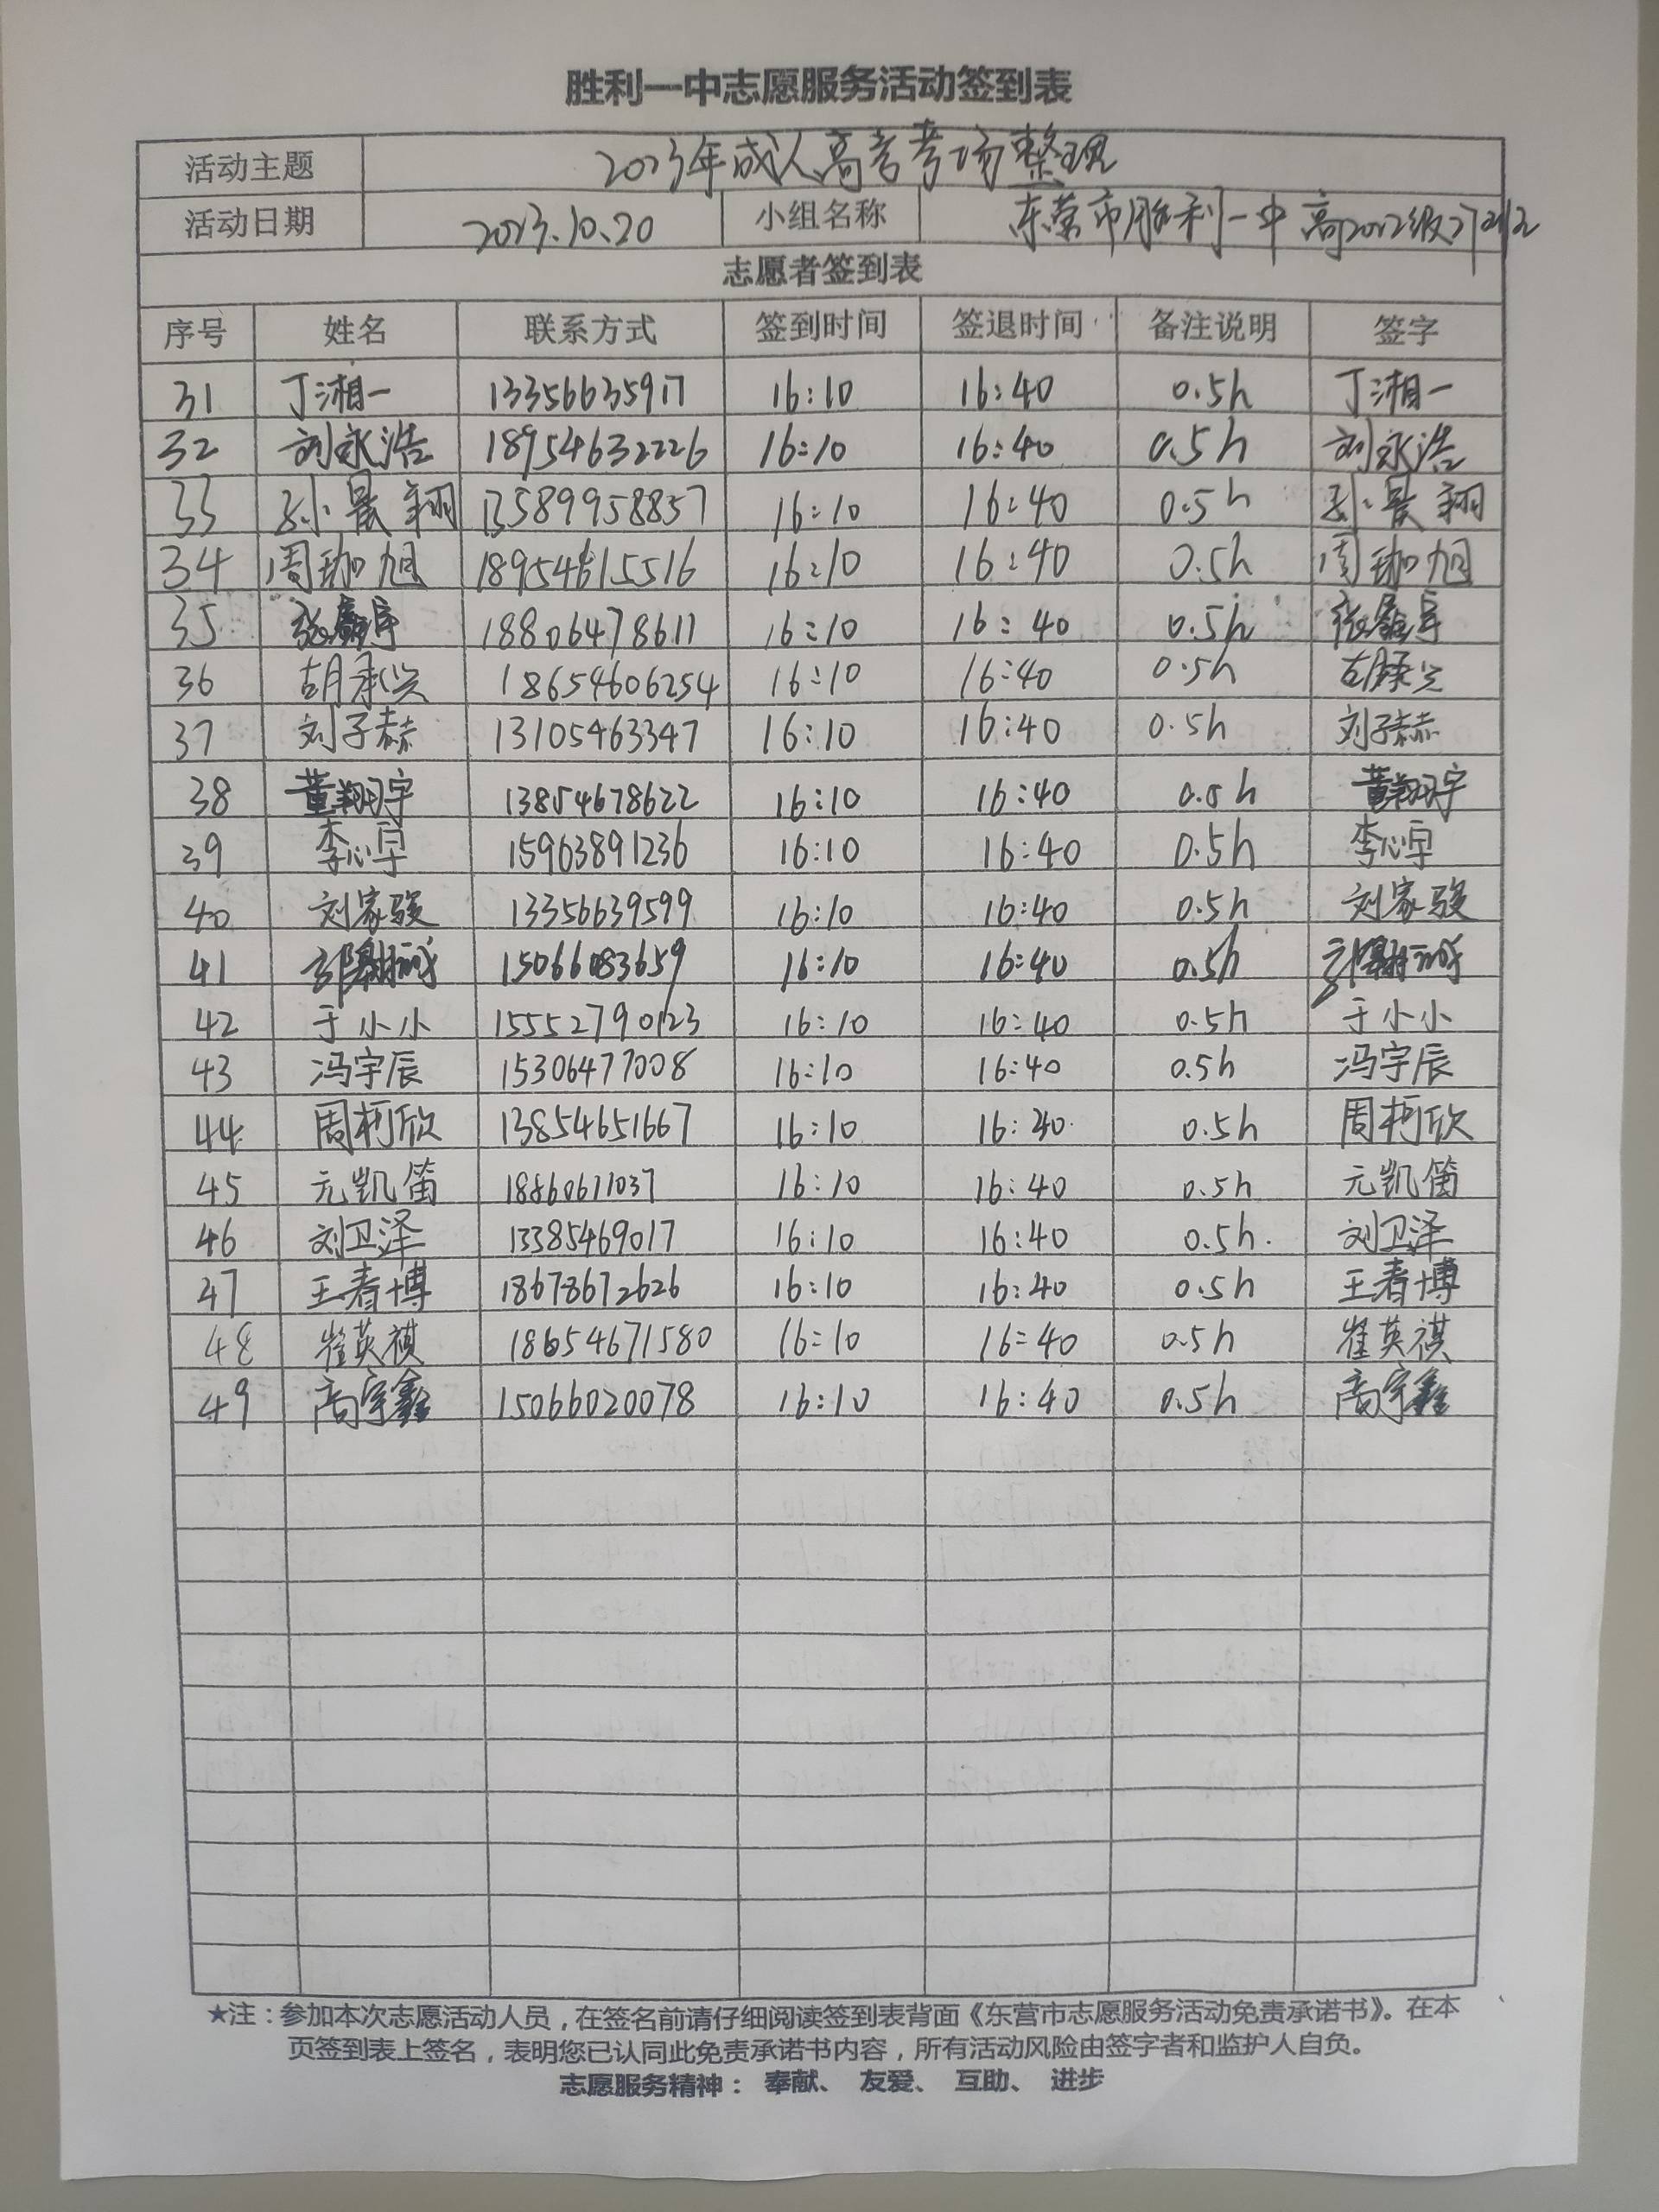 胜利一中志愿服务活动签到表
活动主题 2023年成人高考考场整理
活动日期 2023.10.20 小组名称 东营市胜利一中高2022级27班
志愿者签到表
序号 姓名 联系方式 签到时间 签退时间 备注说明 签字
31 丁湘一 13356635917 16:10 16:40 0.5h 丁湘一
32 刘永浩 18954632226 16:10 16:40 0.5h 刘永浩
33 孙晨翔 13589958857 16:10 16:40 0.5h 孙晨翔
34 周珈旭 18954615516 16:10 16:40 0.5h 周珈旭
35 18806478611 16:10 16:40 0.5h
36 胡承兴 18654606254 16:10 16:40 0.5h 胡承兴
37 刘子赫 13105463347 16:10 16:40 0.5h 刘子赫
38 董翔宇 13854678622 16:10 16:40 0.5h 董翔宇
39 李心卓 15963891236 16:10 16:40 0.5h 李心卓
40 刘家骏 13356639599 16:10 16:40 0.5h 刘家骏
41 15066083659 16:10 16:40 0.5h
42 于小小 15552790123 16:10 16:40 0.5h 于小小
43 冯宇辰 15306477008 16:10 16:40 0.5h 冯宇辰
44 周柯欣 13854651667 16:10 16:40 0.5h 周柯欣
45 元凯笛 18860611037 16:10 16:40 0.5h 元凯笛
46 刘卫泽 13385469017 16:10 16:40 0.5h 刘卫泽
47 王春博 18678672626 16:10 16:40 0.5h 王春博
48 崔英祺 18654671580 16:10 16:40 0.5h 崔英祺
49 商宇鑫 15066020078 16:10 16:40 0.5h 商宇鑫
★注：参加本次志愿活动人员，在签名前请仔细阅读签到表背面《东营市志愿服务活动免责承诺书》。在本
页签到表上签名，表明您已认同此免责承诺书内容，所有活动风险由签字者和监护人自负。
志愿服务精神： 奉献、 友爱、 互助、 进步